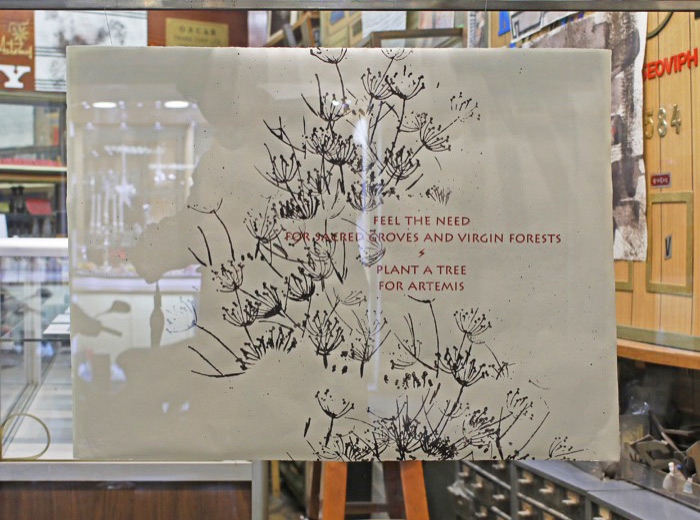 Y
FEEL THE NEED
FOR SACRED GROVES AND VIRGIN FORESTS
PLANT A TREE
FOR ARTEMIS
SEOVIPH
584
V